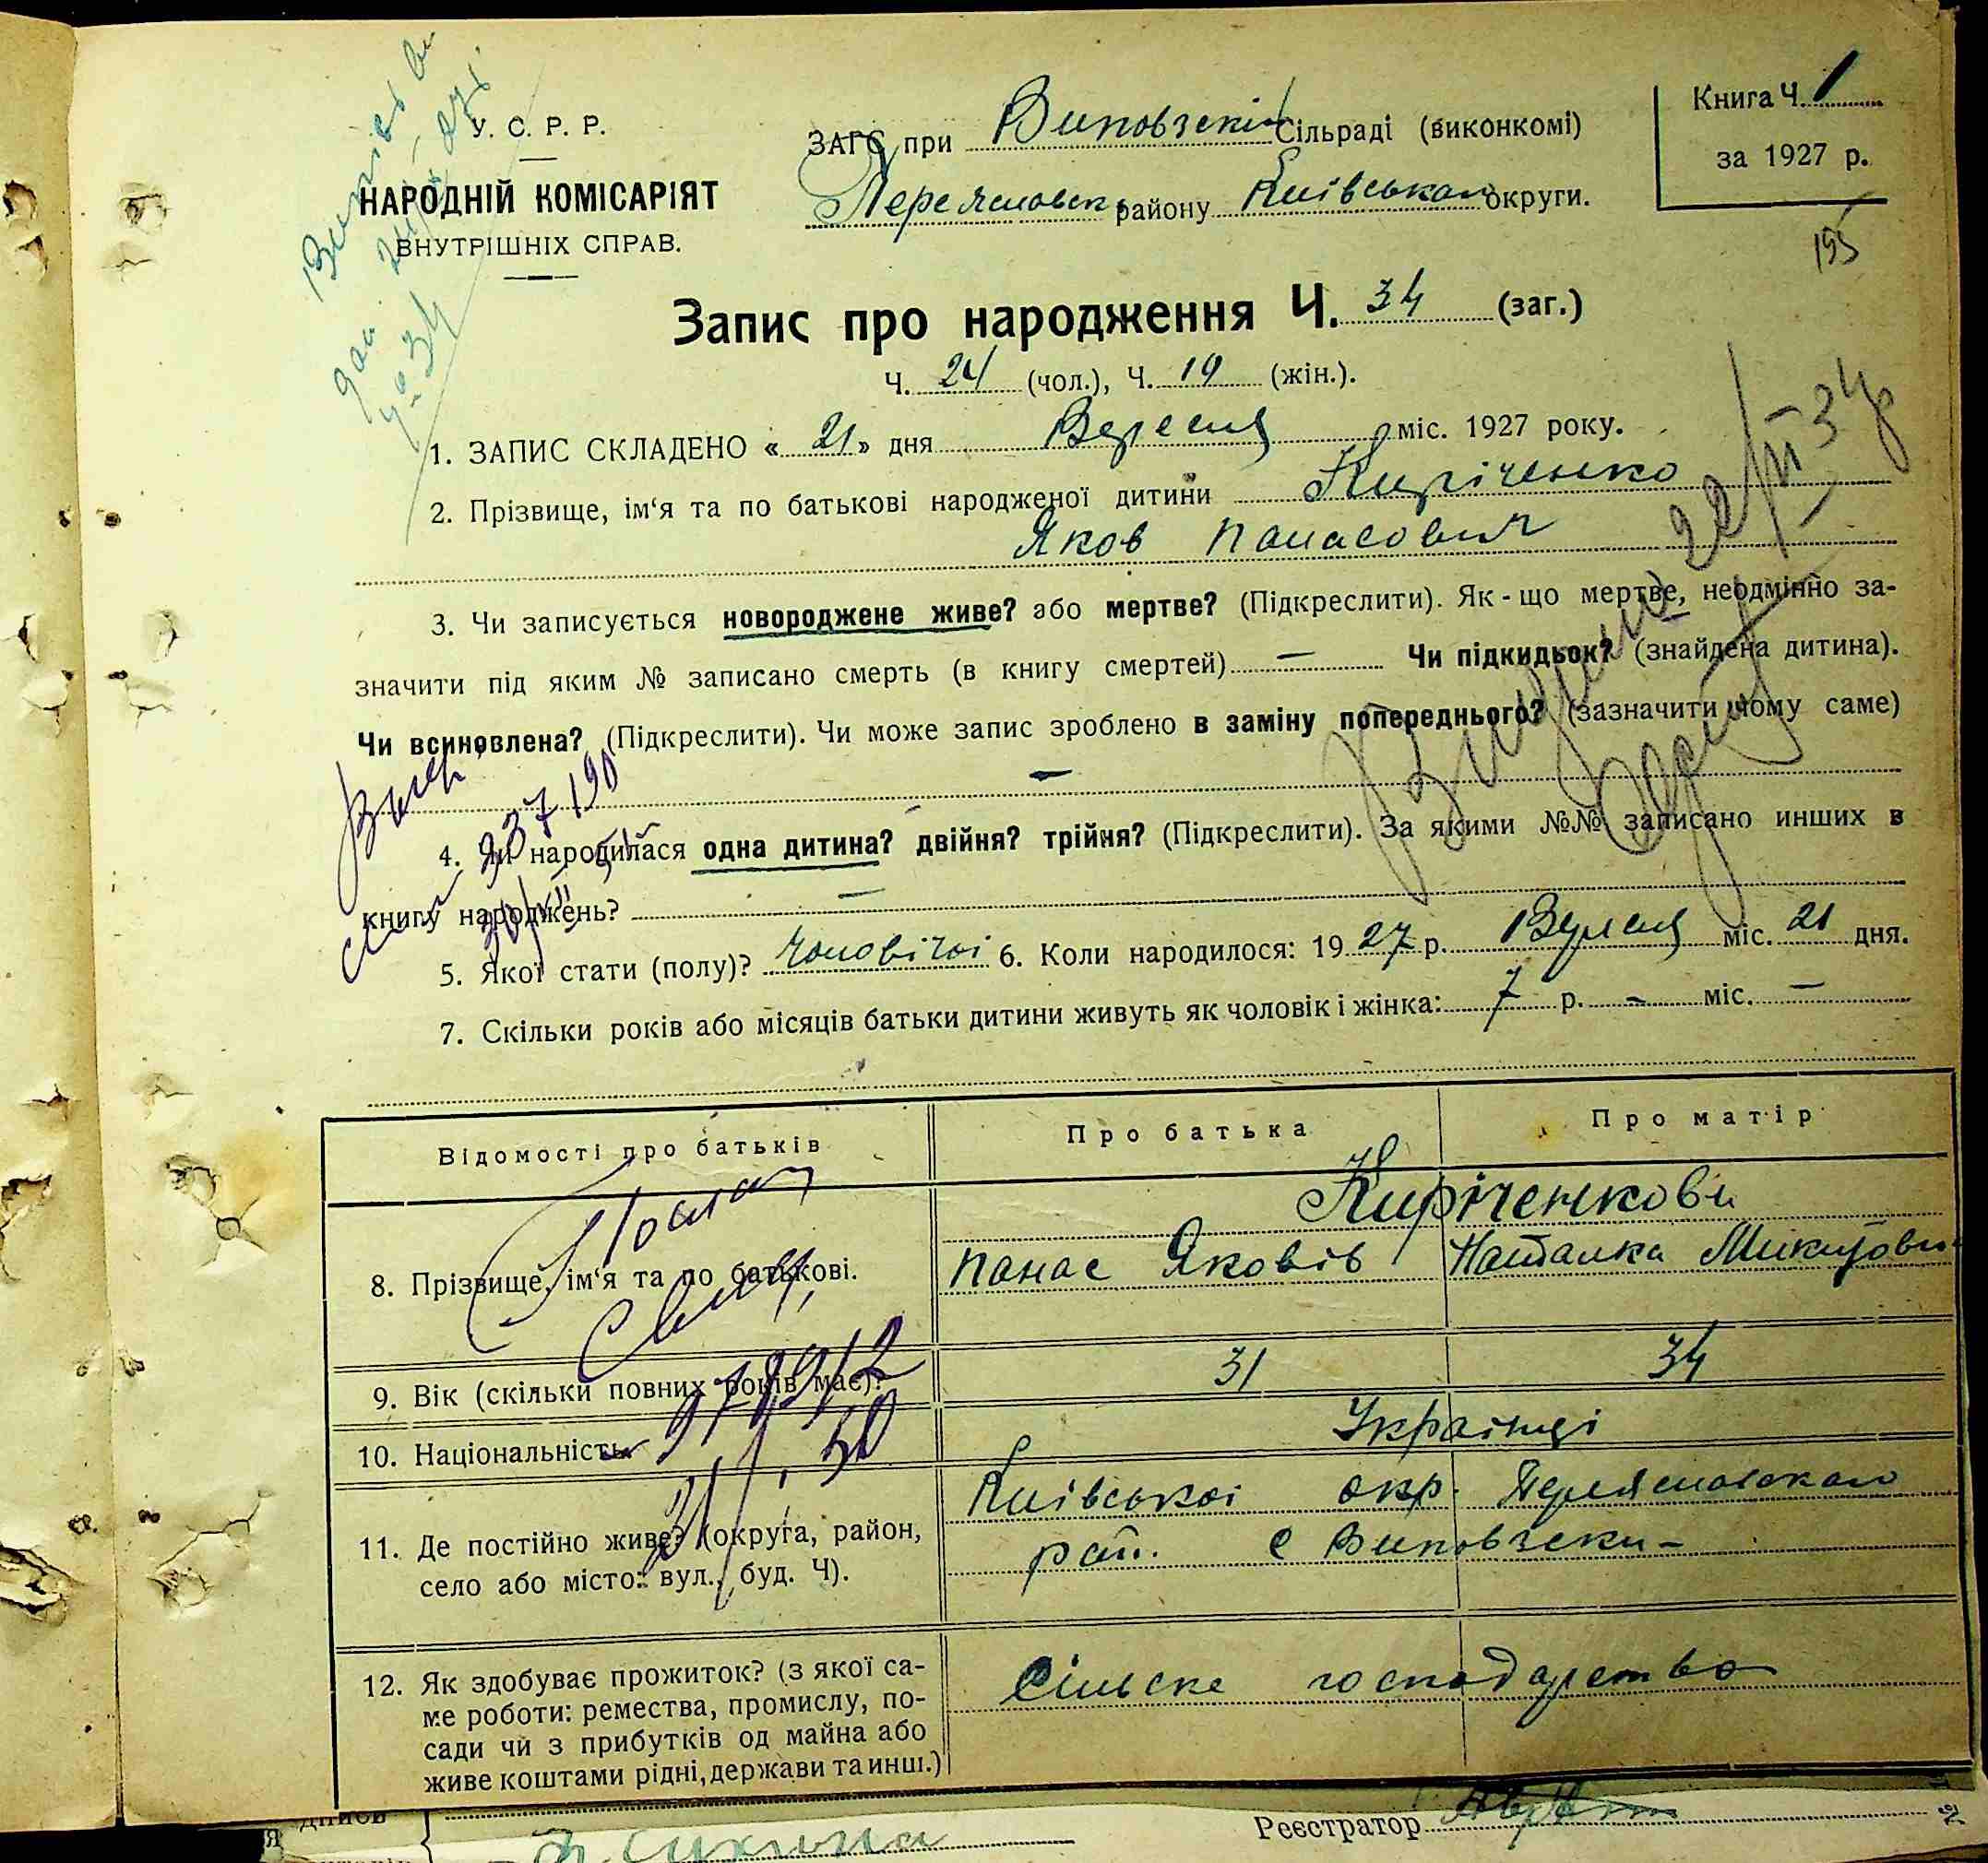 У. С. Р. Р.
НАРОДНІЙ КОМІСАРІЯТ
ВНУТРІШНІХ СПРАВ.
ЗАГС при Виповзскій Сільраді (виконкомі)
Переясловськ району Київськоі округи.
Книга Ч. 1
за 1927 р.
195
Запис про народження Ч. 34 (заг.)
Ч. 24 (чол.), Ч. 19 (жін.).
1. ЗАПИС СКЛАДЕНО « 21 » дня Вересня міс. 1927 року.
2. Прізвище, ім‘я та по батькові народженої дитини Киріченко
Яков Панасович
3. Чи записується новороджене живе? або мертве? (Підкреслити). Як-що мертве, неодмінно за-
значити під яким № записано смерть (в книгу смертей) — Чи підкидьок? (знайдена дитина).
Чи всиновлена? (Підкреслити). Чи може запис зроблено в заміну попереднього? (зазначити чому саме)
—
4. Чи народилася одна дитина? двійня? трійня? (Підкреслити). За якими №№ записано инших в
книгу народжень? —
5. Якої стати (полу)? чоловічоі 6. Коли народилося: 19 27 р. Вересня міс. 21 дня.
7. Скільки років або місяців батьки дитини живуть як чоловік і жінка: 7 р. – міс. —
Відомості про батьків
Про батька
Про матір
8. Прізвище, ім‘я та по батькові.
Киріченкови
Панас Яковів
Наталка Микитовна
9. Вік (скільки повних років має)?
31
34
10. Національність
Українці
11. Де постійно живе? (округа, район,
село або місто: вул., буд. Ч).
Київськоі окр. Переяславского
рай. с Виповзски-
12. Як здобуває прожиток? (з якої са-
ме роботи: ремества, промислу, по-
сади чи з прибутків од майна або
живе коштами рідні, держави та инш.)
Сільске господарство
Реєстратор